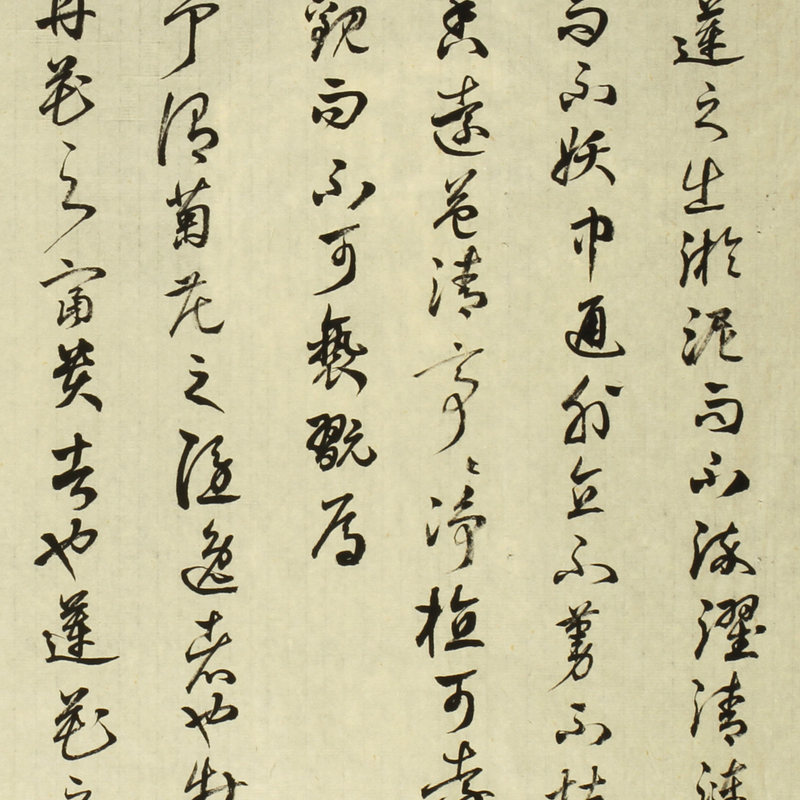 蓮之出淤泥而不染濯清漣
而不妖中通外直不蔓不枝
香遠益清亭〻淨植可遠
觀而不可褻翫焉
予謂菊花之隱逸者也牡
丹花之富貴者也蓮花之